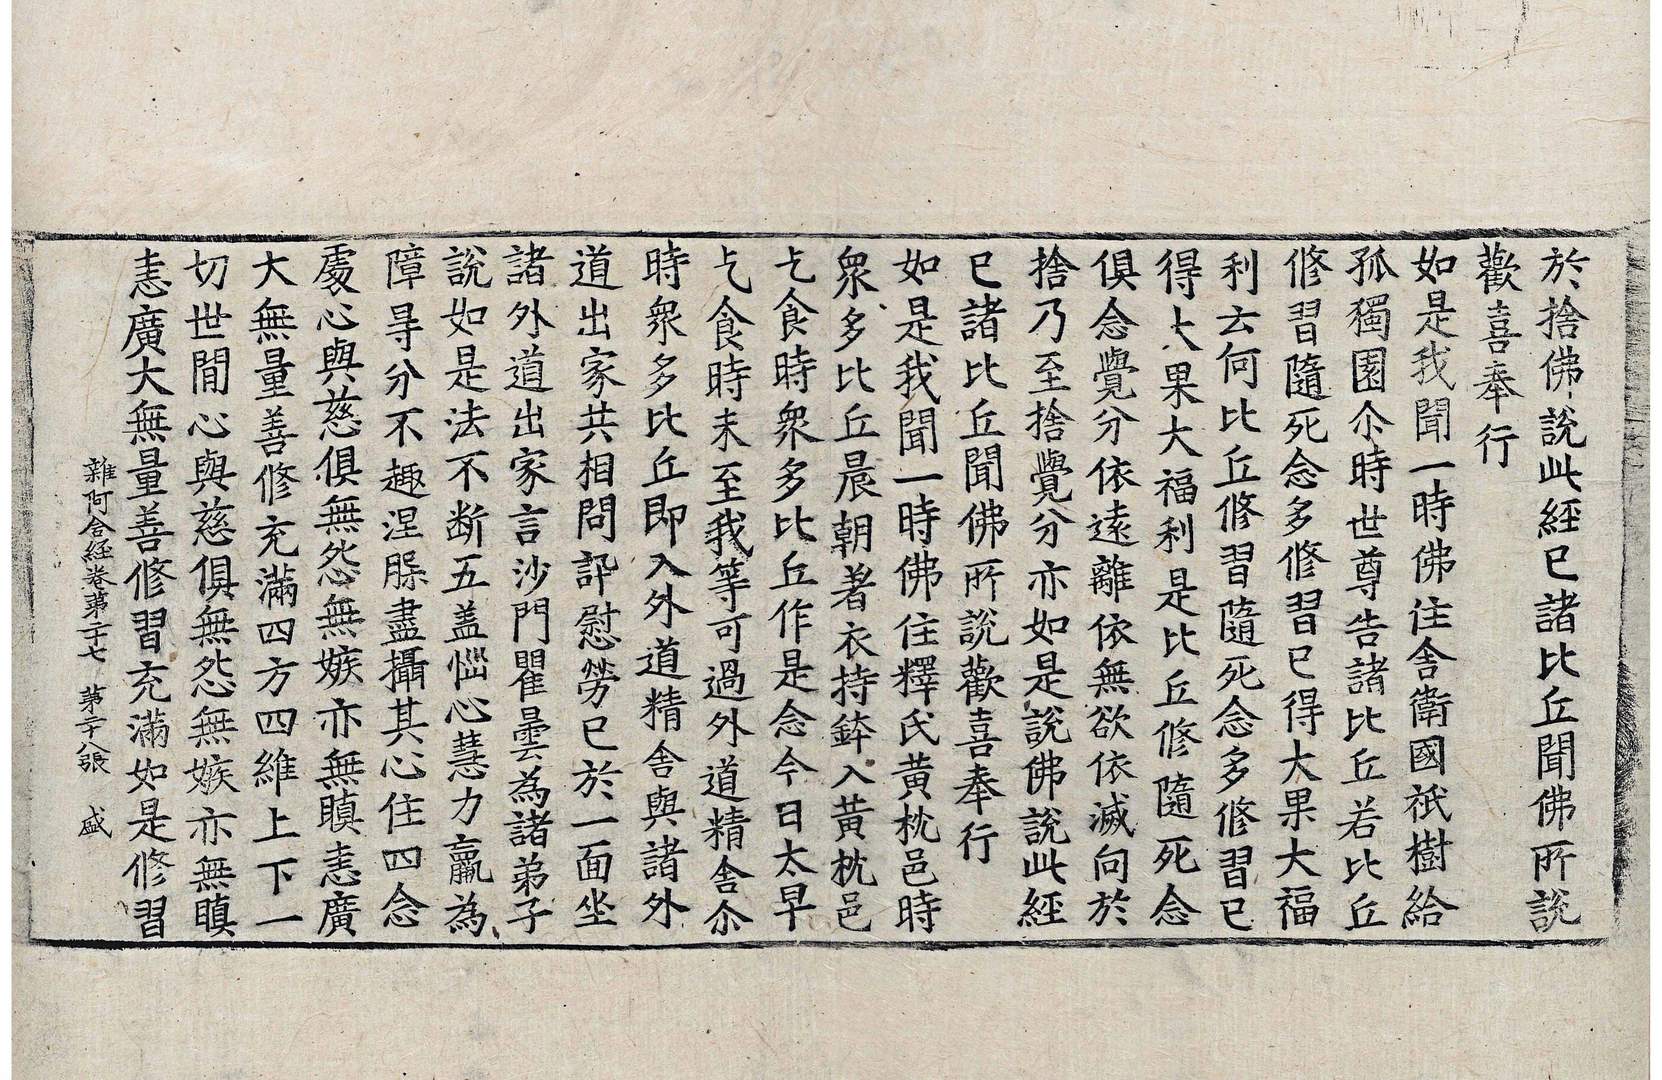 於捨佛說此經已諸比丘聞佛所說
歡喜奉行
如是我聞一時佛住舍衛國祇樹給
孤獨園尒時世尊告諸比丘若比丘
修習隨死念多修習已得大果大福
利云何比丘修習隨死念多修習已
得大果大福利是比丘修隨死念
俱念覺分依遠離依無欲依滅向於
捨乃至捨覺分亦如是說佛說此經
已諸比丘聞佛所說歡喜奉行
如是我聞一時佛住釋氏黃枕邑時
衆多比丘晨朝著衣持鉢入黃枕邑
乞食時衆多比丘作是念今日太早
乞食時未至我等可過外道精舍尒
時衆多比丘即入外道精舍與諸外
道出家共相問訊慰勞已於一面坐
諸外道出家言沙門瞿曇為諸弟子
說如是法不断五盖惱心慧力羸為
障㝵分不趣涅槃盡攝其心住四念
處心與慈俱無怨無嫉亦無瞋恚廣
大無量善修充滿四方四維上下一
切世間心與慈俱無怨無嫉亦無瞋
恚廣大無量善修習充滿如是修習
雜阿含經卷第二十七 第二十八張 盛